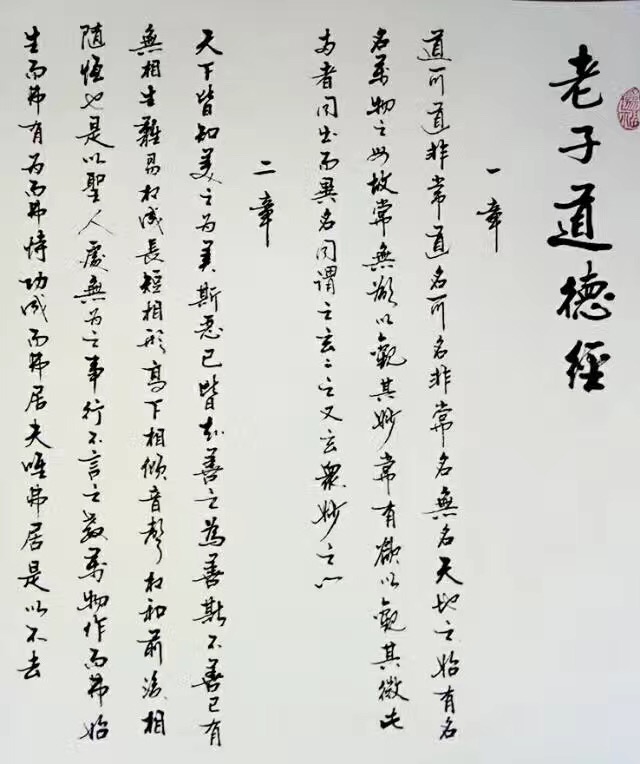 老子道德經
一章
道可道非常道名可名非常名無名天地之始有名
名萬物之母故常無欲以觀其妙常有欲以觀其徼此
两者同出而異名同謂之玄〻之又玄眾妙之门
二章
天下皆知美之为美斯惡已皆知善之為善斯不善已有
無相生難易相成長短相形高下相傾音聲相和前後相
隨恆也是以聖人處無为之事行不言之教萬物作而弗始
生而弗有为而弗恃功成而弗居夫唯弗居是以不去